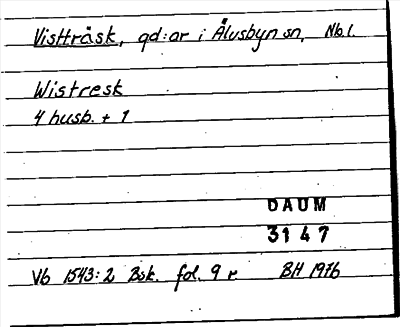 Vistträsk, gd:ar i Älvsbyn sn, Nb.l.
Wistresk
4 husb. + 1
DAUM
3147
Vb 1543:2 Bsk. fol. 9 r BH 1976